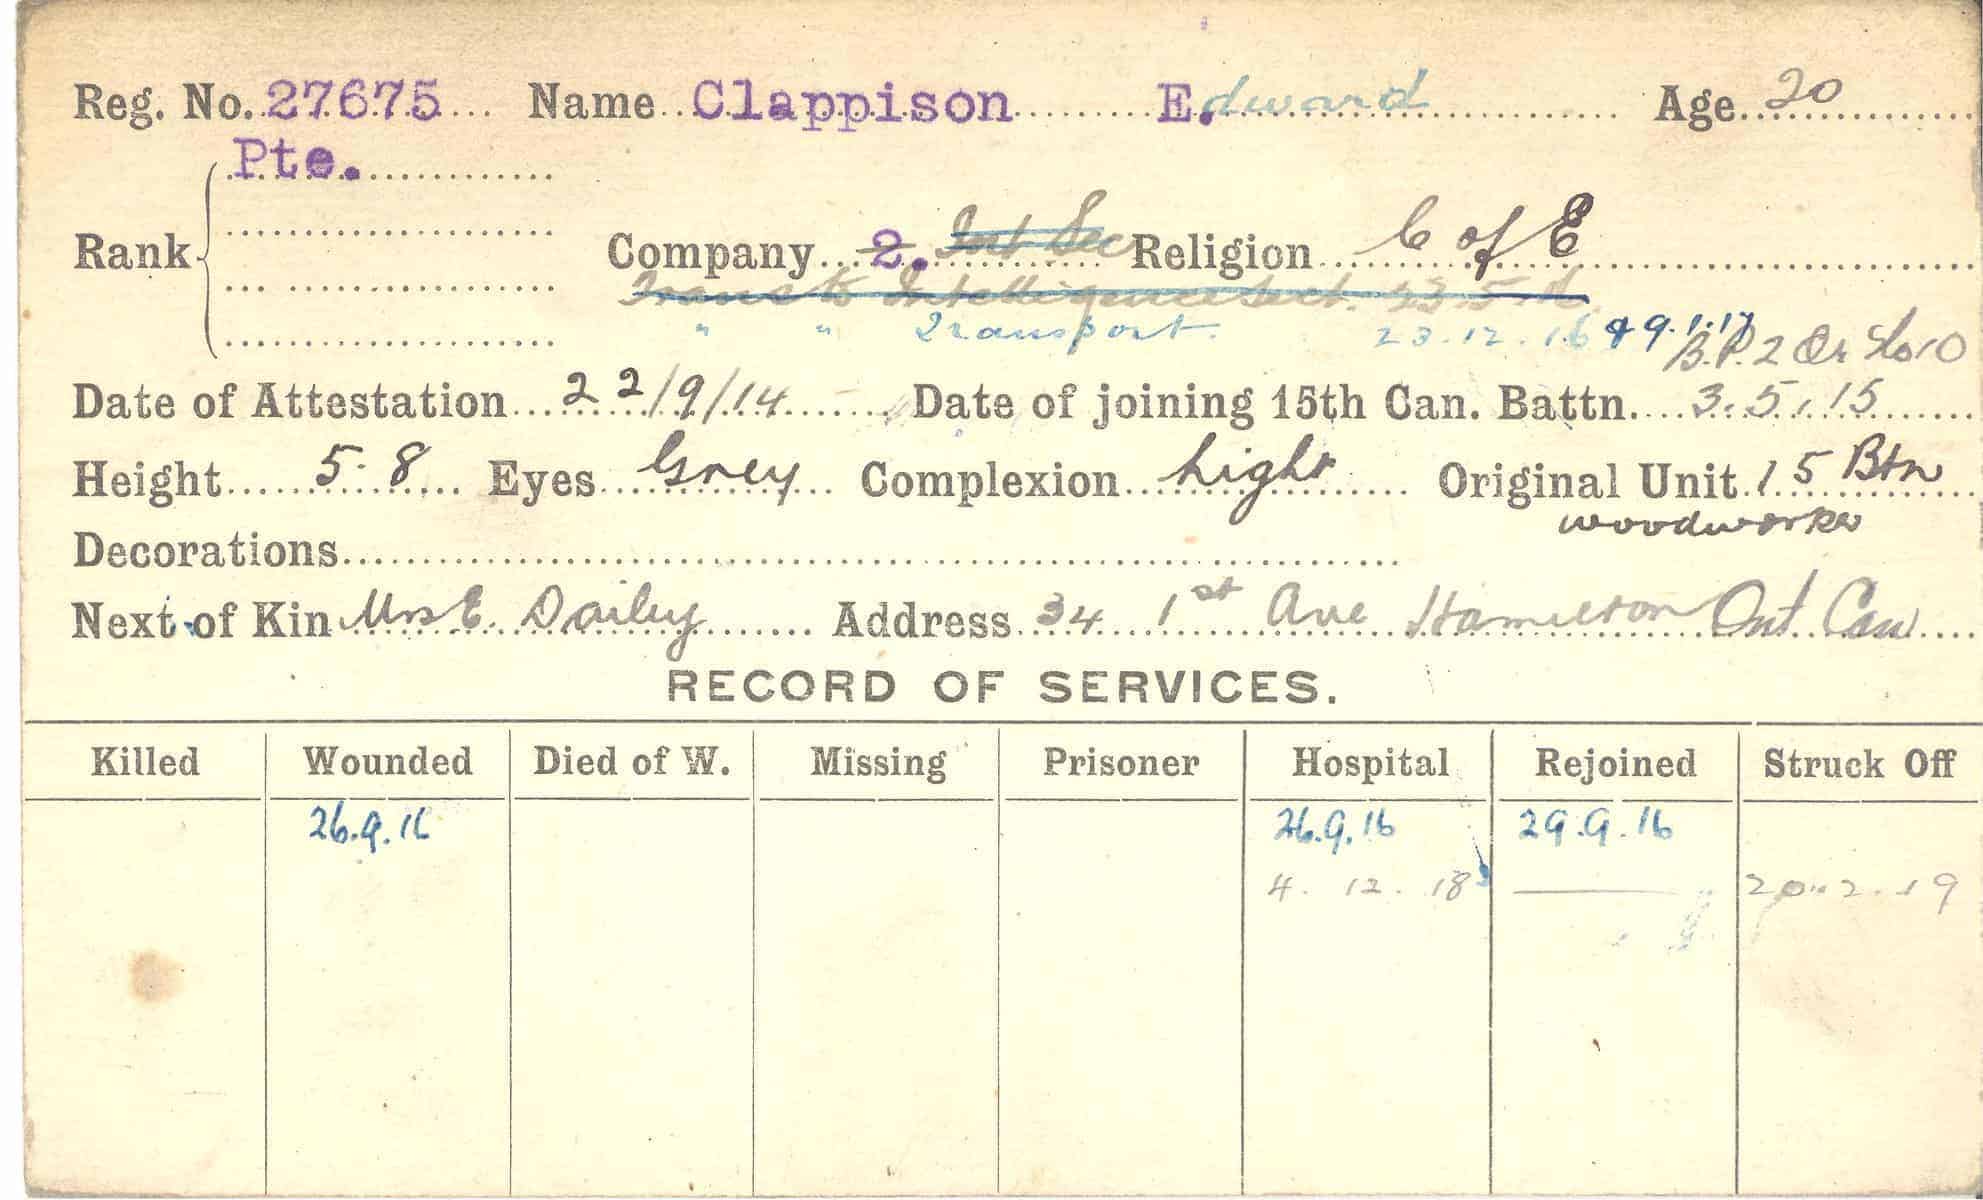 Reg. No. 27675 Name Clappison E.dward Age 20
Pte.
Rank Company 2. Int Sec Religion C of E
Trans to Intelligence Sect. 23.5.
" " Transport 23.12.16 & 9.1.17
B.P. 2 Or
Date of Attestation 22/9/14 Date of joining 15th Can. Battn. 3.5.15
Height 5-8 Eyes Grey Complexion Light Original Unit 15 Btn
woodworker
Decorations
Next of Kin Mrs E Dailey Address 34 1st Ave Hamilton Ont Can
RECORD OF SERVICES.
Killed Wounded Died of W. Missing Prisoner Hospital Rejoined Struck Off
26.9.16 26.9.16 29.9.16
4.12.18 20.2.19